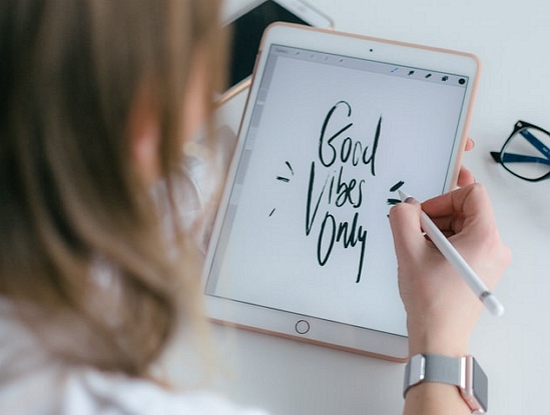 Good
Vibes
Only